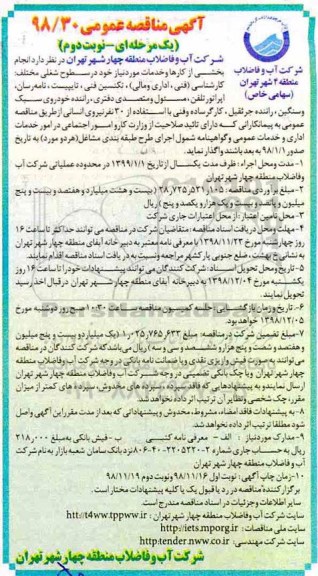 آگهی مناقصه عمومی ۹۸/۳۰
(یک مرحله‌ای – نوبت دوم)
شرکت آب و فاضلاب
منطقه ۴ شهر تهران
(سهامی خاص)
شرکت آب و فاضلاب منطقه چهار شهر تهران در نظر دارد انجام
بخشی از کارها و خدمات موردنیاز خود در سطوح شغلی مختلف:
کارشناسی (فنی، اداری و مالی)، تکنسین فنی، تایپیست، نامه‌رسان،
اپراتور تلفن، مسئول و متصدی دفتری، راننده خودروی سبک
وسنگین، راننده جرثقیل، کارگر ساده وفنی با استفاده از ۳۰ نفر نیروی انسانی از طریق مناقصه
عمومی به پیمانکارانی که دارای تائید صلاحیت از وزارت کار و امور اجتماعی در امور خدمات
اداری و خدمات عمومی و گواهینامه شمول اجرای طرح طبقه بندی مشاغل (هر دو مورد) به تاریخ
صدور ۹۸/۱/۱ به بعد باشند واگذار نماید.
۱- مدت ومحل اجراء: ظرف مدت یکسال از تاریخ ۱۳۹۹/۱/۱ در محدوده عملیاتی شرکت آب
وفاضلاب منطقه چهار شهر تهران
۲- مبلغ برآوردی مناقصه: ۲۸,۷۲۵,۵۳۱,۱۰۵ (بیست و هشت میلیارد و هفتصد و بیست و پنج
میلیون و پانصد و سی و یک هزار و یکصد و پنج) ریال
۳- محل تامین اعتبار: از محل اعتبارات جاری شرکت
۴- مهلت ومحل دریافت اسناد مناقصه: متقاضیان شرکت در مناقصه می توانند حداکثر تا ساعت ۱۶
روز چهارشنبه مورخ ۱۳۹۸/۱۱/۲۳ با معرفی نامه معتبر به دبیرخانه آبفای منطقه چهار شهر تهران
به نشانی خ بهشت، ضلع جنوبی پارکشهر مراجعه ونسبت به دریافت اسناد مناقصه اقدام نمایند.
۵- تاریخ ومحل تحویل اسناد: شرکت کنندگان می توانند پیشنهادات خود را تا ساعت ۱۶ روز
یکشنبه مورخ ۱۳۹۸/۱۲/۰۴ به دبیرخانه آبفای منطقه چهار شهر تهران در قبال اخذ رسید
تحویل نمایند.
۶- تاریخ وزمان بازگشایی: جلسه کمیسیون مناقصه ساعت ۱۰:۳۰ صبح روز دوشنبه مورخ
۱۳۹۸/۱۲/۰۵ خواهد بود.
۷- مبلغ تضمین شرکت در مناقصه: مبلغ ۱,۰۲۵,۷۶۵,۶۳۳ (یک میلیارد و بیست و پنج میلیون
و هفتصد و شصت و پنج هزار و ششصد و سی و سه) ریال می باشد که شرکت کنندگان در مناقصه
می توانند به صورت فیش واریزی نقدی ویا ضمانت نامه بانکی در وجه شرکت آب وفاضلاب منطقه
چهار شهر تهران ویا چک بانکی تضمینی در وجه شرکت آب و فاضلاب منطقه چهار شهر تهران
ارسال نمایند و به پیشنهادهایی که فاقد سپرده، سپرده های مخدوش، سپرده های کمتر از میزان
مقرر، چک شخصی ونظایر آن ترتیب اثر داده نخواهد شد.
۸- به پیشنهادات فاقد امضاء، مشروط، مخدوش وپیشنهاداتی که بعد از مدت مقرر این آگهی واصل
شود مطلقا ترتیب اثر داده نخواهد شد.
۹- مدارک موردنیاز: الف - معرفی نامه کتبی ب - فیش بانکی به مبلغ ۲۱۸,۰۰۰
ریال به حساب جاری شماره نزد بانک سامان شعبه بازار به نام شرکت
آب و فاضلاب منطقه چهار شهر تهران
۱۰- زمان چاپ آگهی: نوبت اول ۹۸/۱۱/۱۶ ونوبت دوم ۹۸/۱۱/۱۹
برگزار کننده مناقصه در رد یا قبول یک یا کلیه پیشنهادات مختار است.
سایر اطلاعات و جزئیات در اسناد مناقصه مندرج است.
سایت شرکت آب و فاضلاب منطقه چهار شهر تهران : htt://t4ww.tppww.ir
سایت ملی مناقصات: http://iets.mporg.ir
سایت شرکت مهندسی: http:tender.nww.co.ir
شرکت آب و فاضلاب منطقه چهار شهر تهران